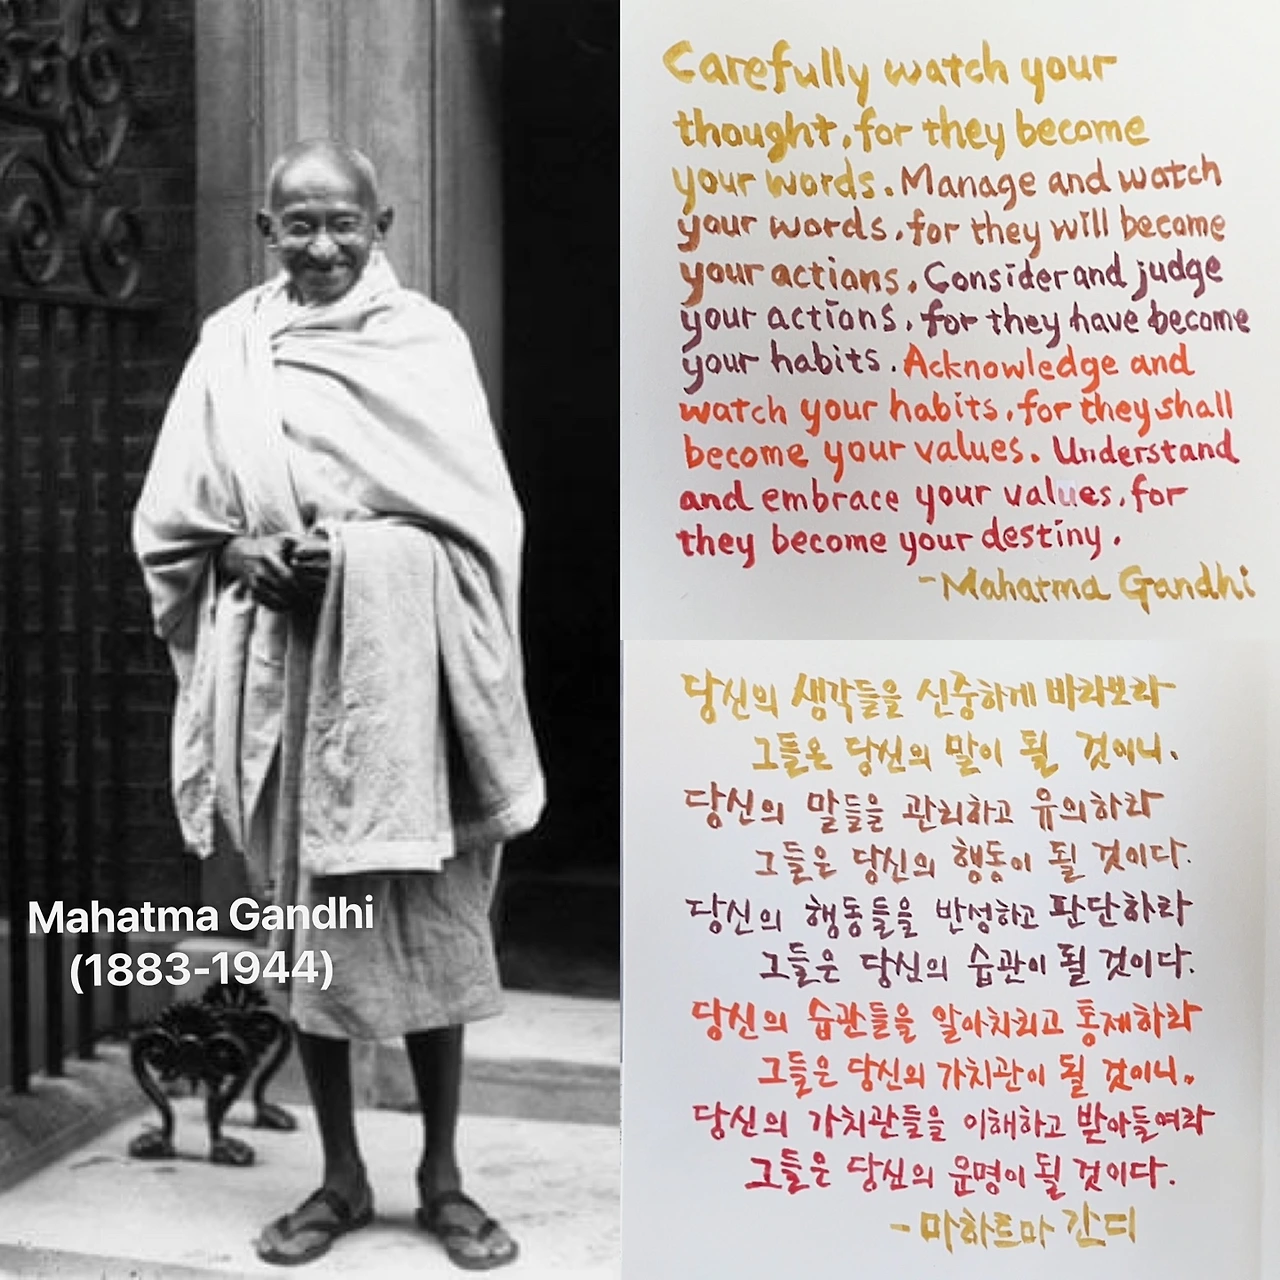 Mahatma Gandhi
(1883-1944)
Carefully watch your
thought, for they become
your words. Manage and watch
your words, for they will become
your actions. Consider and judge
your actions, for they have become
your habits. Acknowledge and
watch your habits, for they shall
become your values. Understand
and embrace your values, for
they become your destiny.
-Mahatma Gandhi
당신의 생각들을 신중하게 바라보라
그들은 당신의 말이 될 것이니.
당신의 말들을 관리하고 유의하라
그들은 당신의 행동이 될 것이다.
당신의 행동들을 반성하고 판단하라
그들은 당신의 습관이 될 것이다.
당신의 습관들을 알아차리고 통제하라
그들은 당신의 가치관이 될 것이니.
당신의 가치관들을 이해하고 받아들여라
그들은 당신의 운명이 될 것이다.
- 마하트마 간디